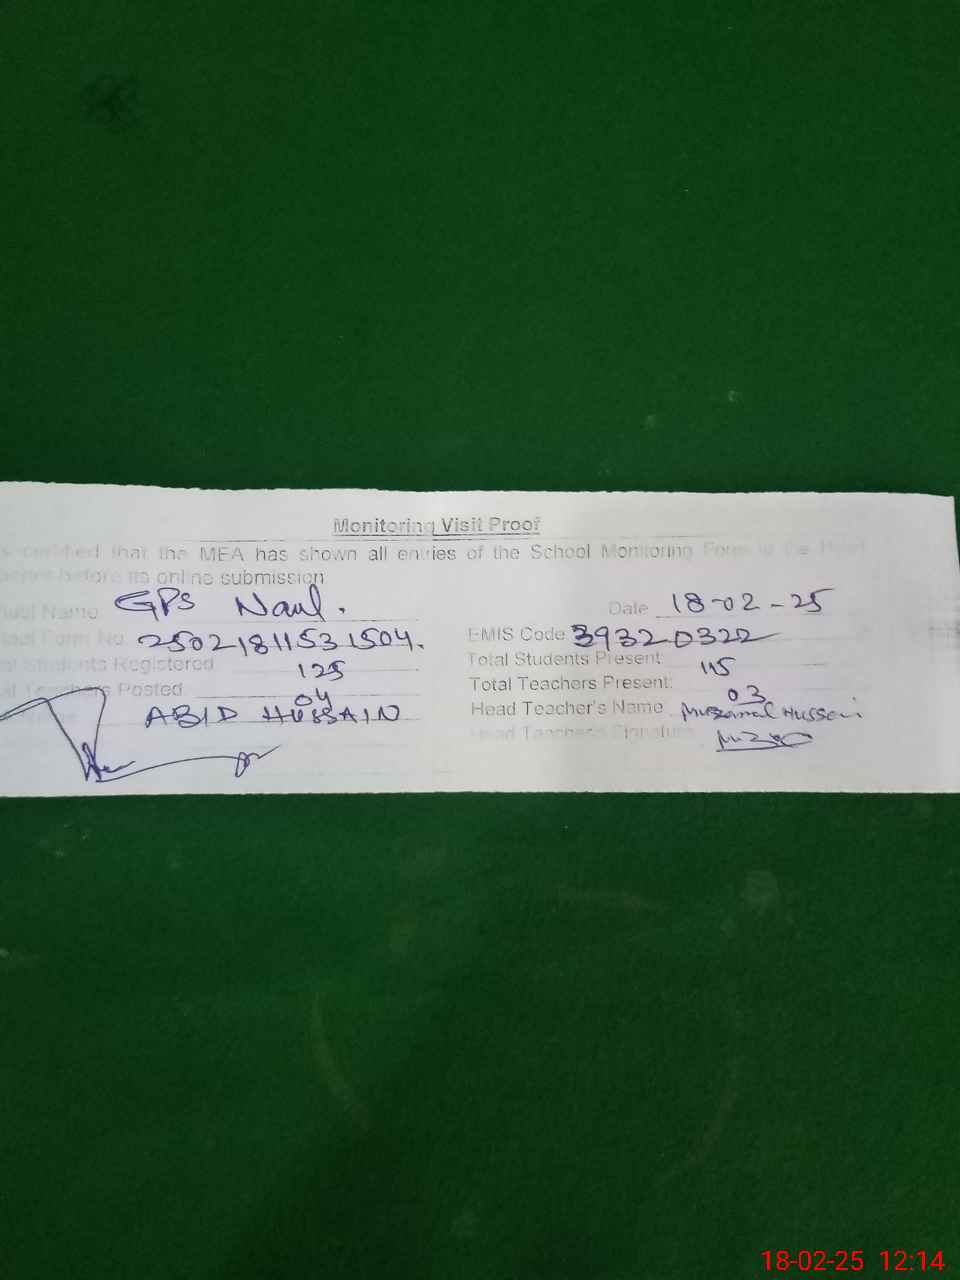 Monitoring Visit Proof
certified that the MEA has shown all entries of the School Monitoring Form to the Head
before its online submission
Name GPS Naul. Date 18-02-25
Form No. 25021811531504. EMIS Code 39320322
Students Registered 125 Total Students Present 115
Teachers Posted 04 Total Teachers Present: 03
ABID HUSSAIN Head Teacher's Name Muzamal Hussain
Head Teachers Signature
18-02-25 12:14